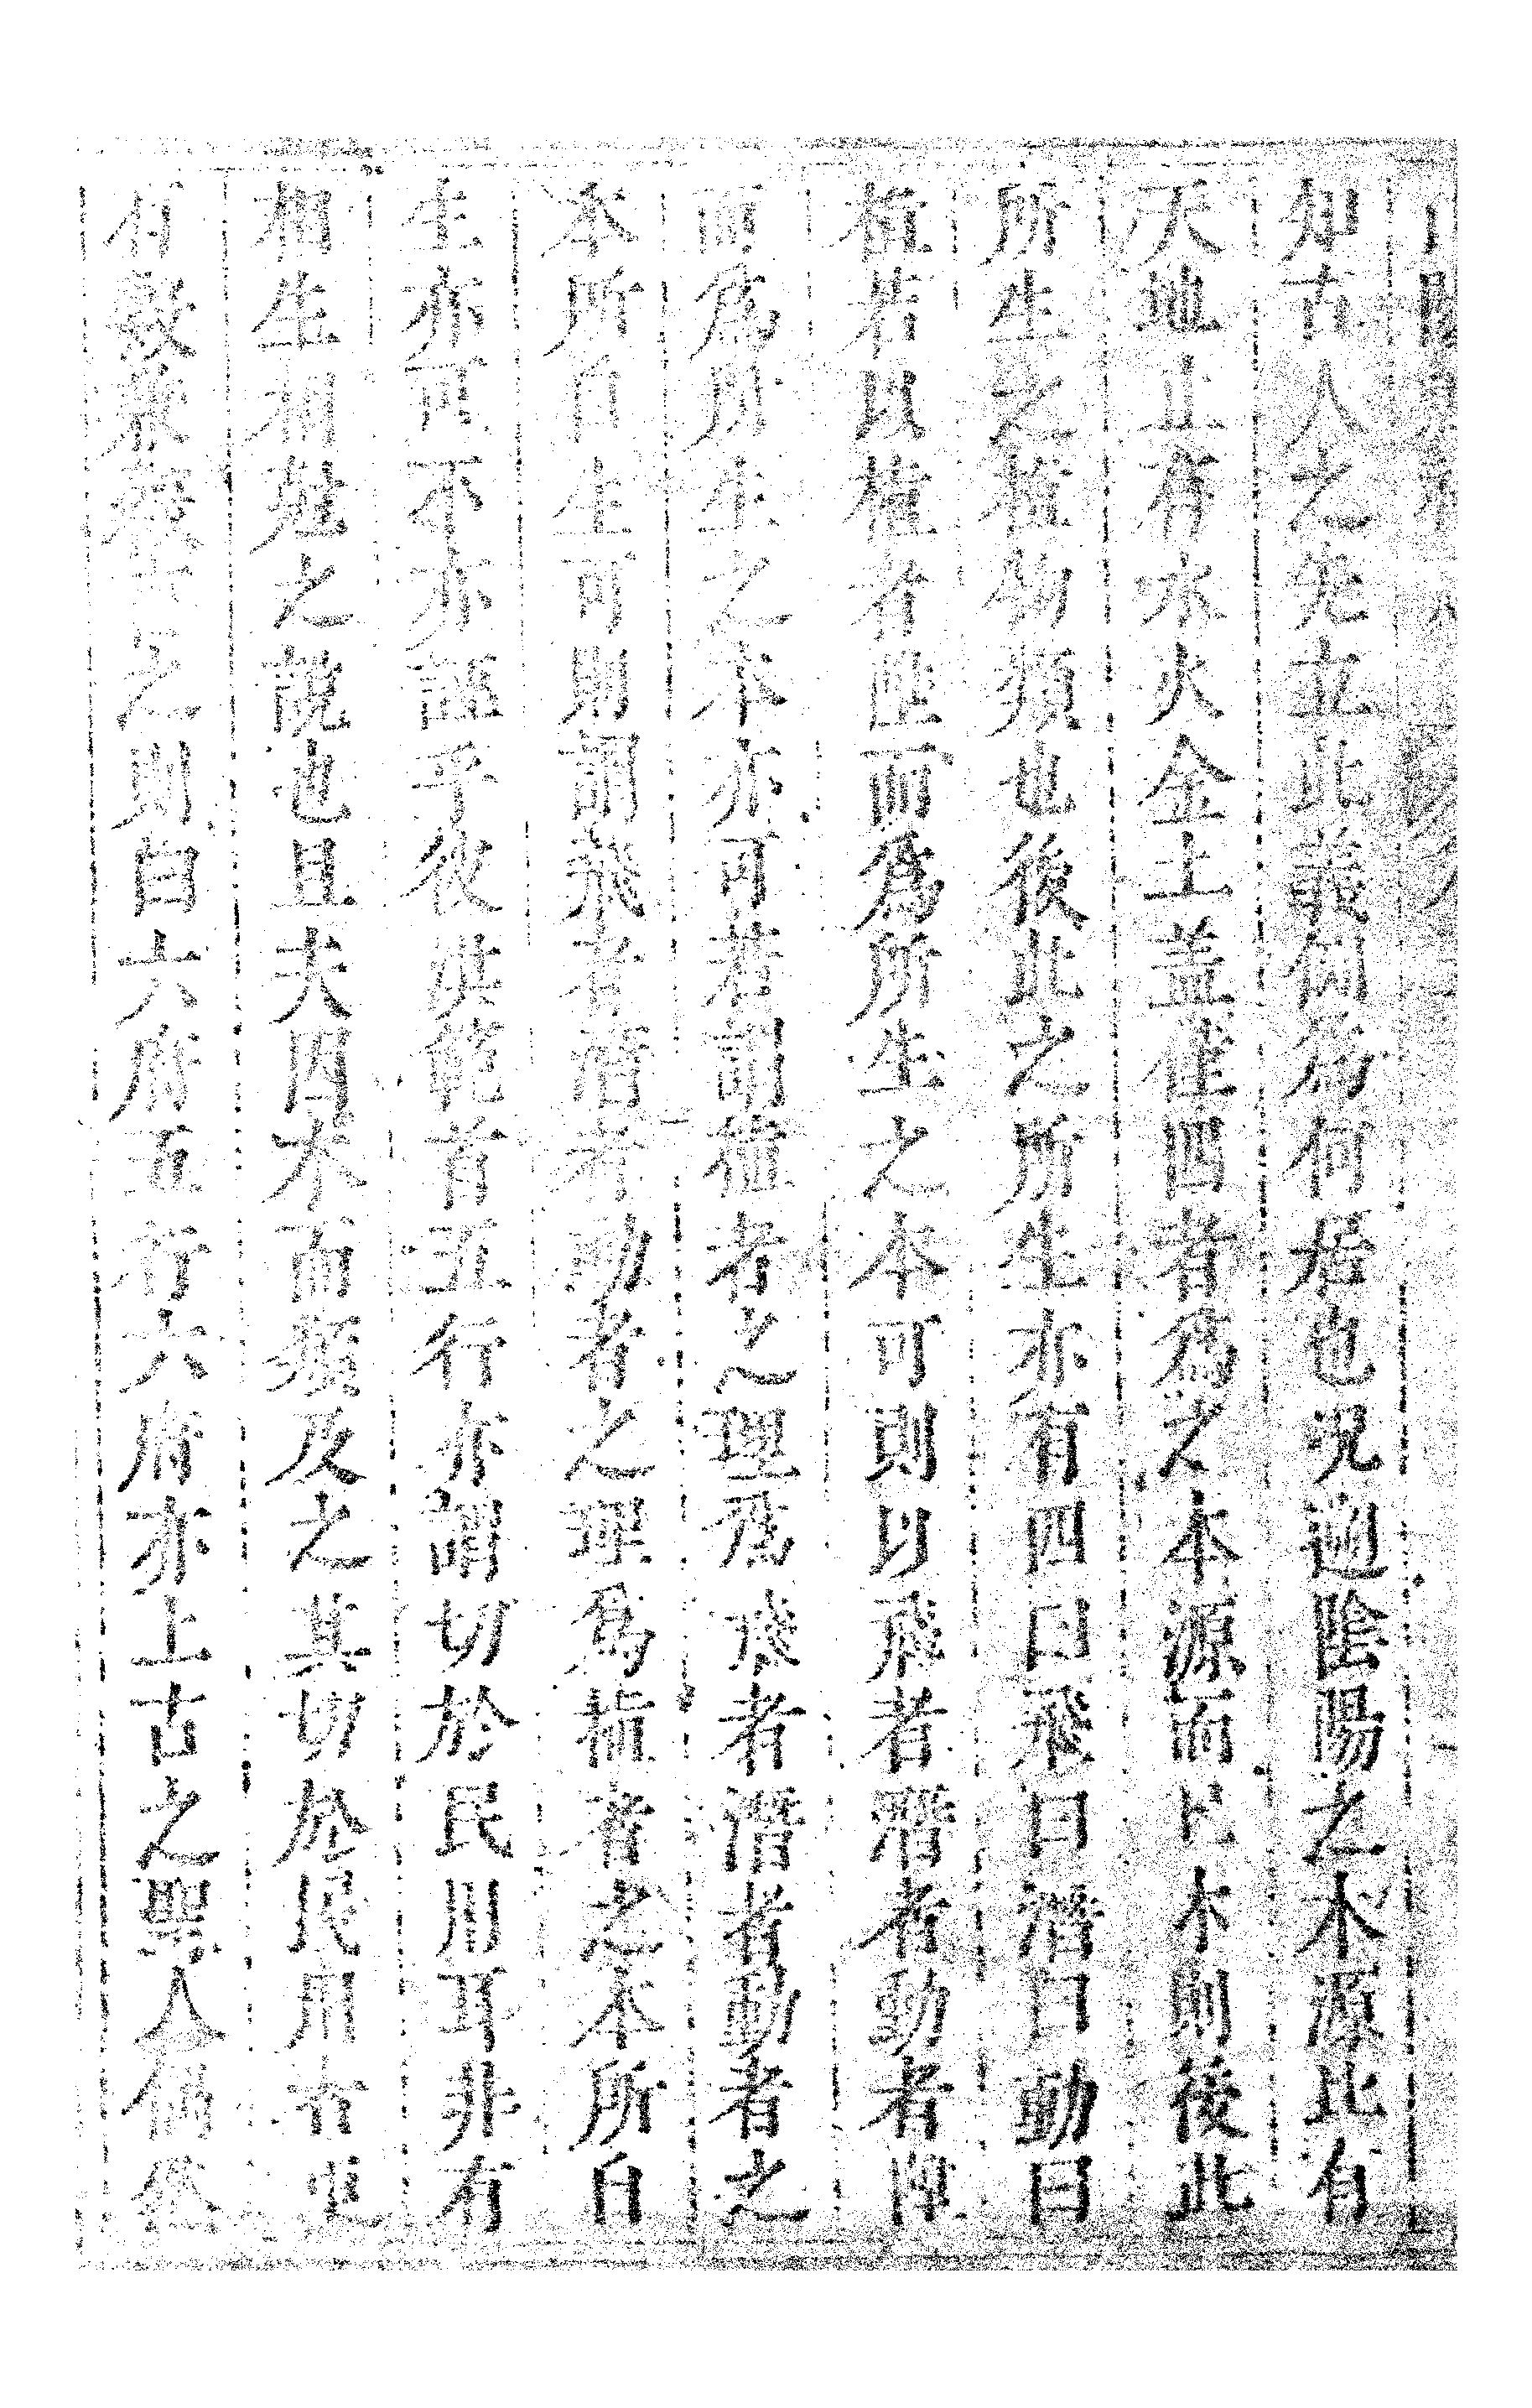 知古人之先立此義例爲何居也況遡陰陽之本源此有
天地止有水火金土盖隹四者爲之本源而已木則後此
所生之植物類也後此之所生亦有四曰飛曰潛曰動曰
植若以植者但而爲所生之本可則以飛者潛者動者但
而爲所生之本亦可若謂植者之理爲飛者潛者動者之
本所自生可則謂飛者潛者動者之理爲植者之本所自
生亦可不亦誣乎彼洪範首五行亦謂切於民用耳非有
相生相尅之說也且夫四木而類及之其切於民用者更
有穀
之則曰六府五行六府亦上古之聖人偶然